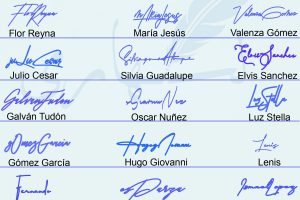 Flor Reyna María Jesús Valenza Gómez
Flor Reyna María Jesús Valenza Gómez
Julio Cesar Silvia Guadalupe Elvis Sanchez
Julio Cesar Silvia Guadalupe Elvis Sanchez
Galván Tudón Oscar Nuñez Luz Stella
Galván Tudón Oscar Nuñez Luz Stella
Gómez García Hugo Giovanni Lenis
Gómez García Hugo Giovanni Lenis
Fernando